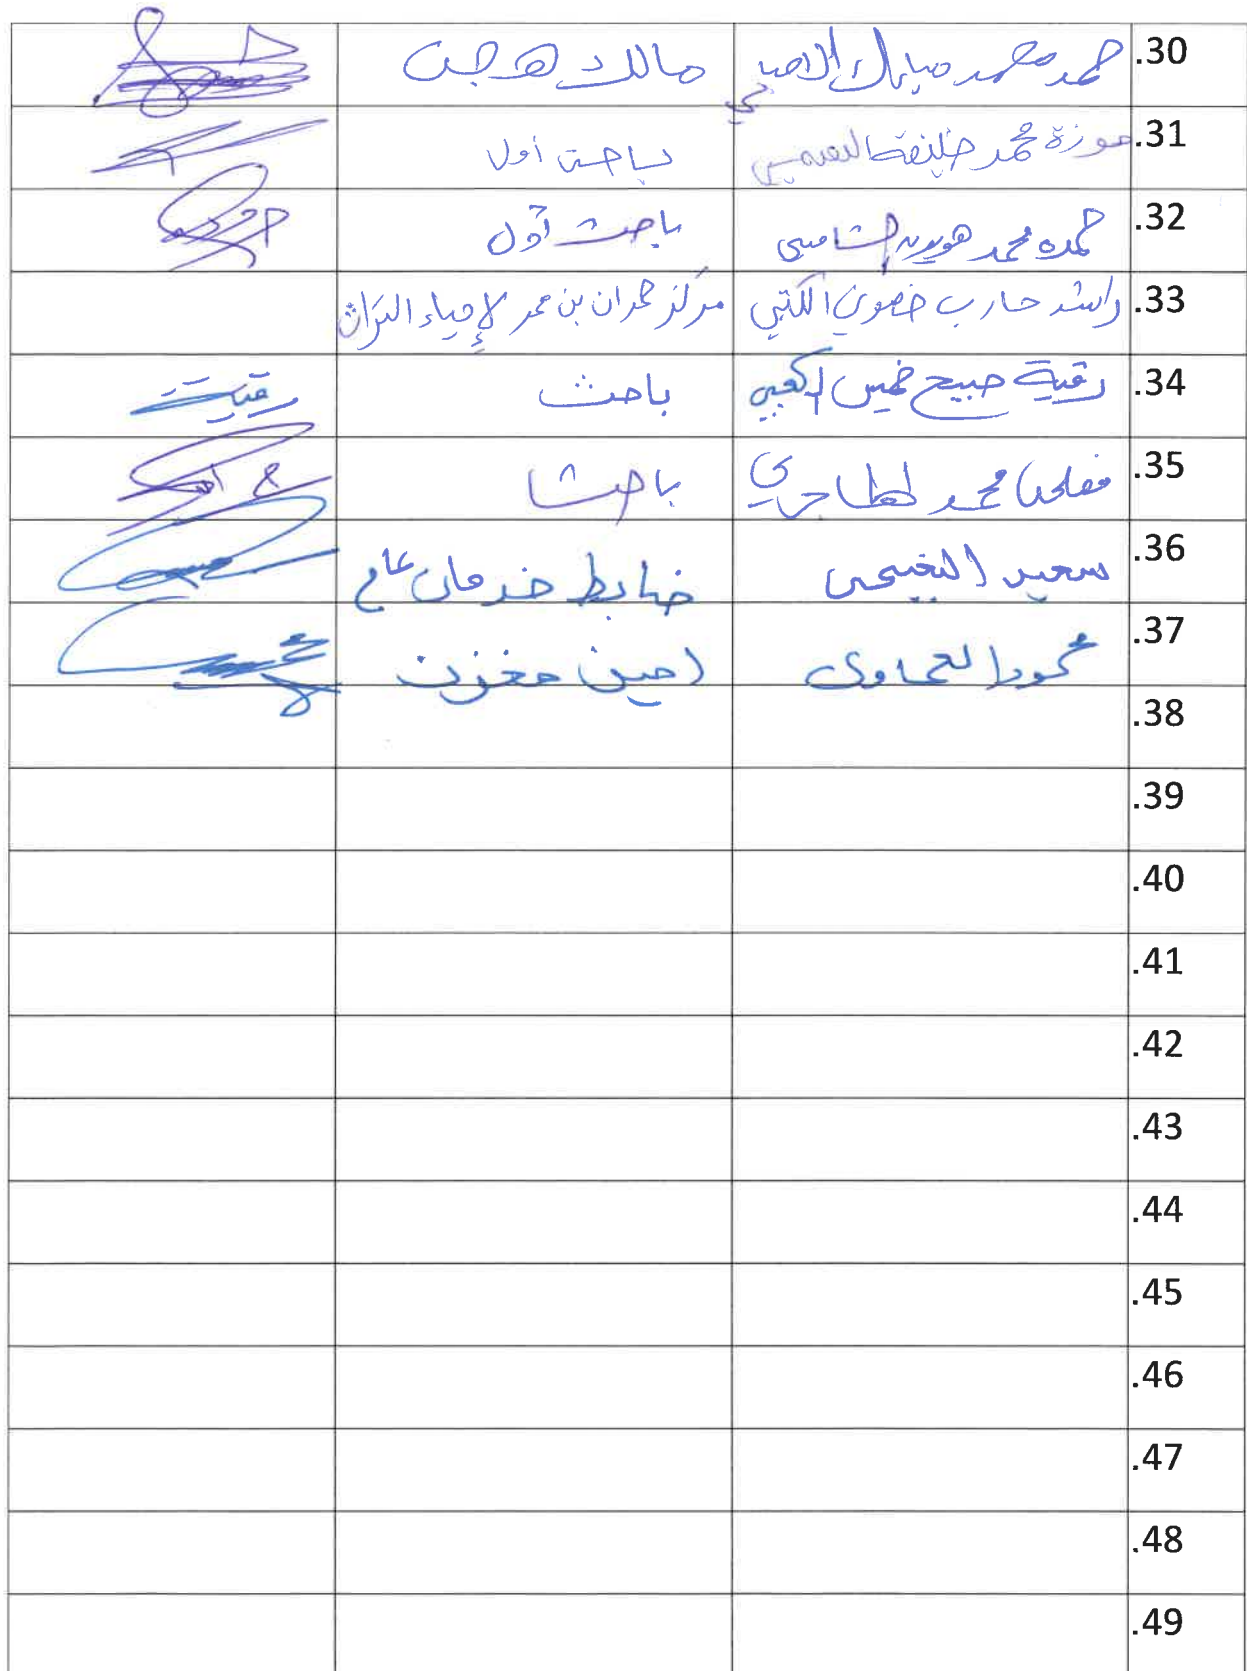 30. حمد محمد مبارك مالك هجن
31. موزة محمد خليفة النعيمي باحث أول
32. حمده محمد هويدن الشامسي باحث أول
33. راشد حارب خصوني الكتبي مركز حمدان بن محمد لإحياء التراث
34. رقية صبيح خميس الكعبي باحث رقية
35. محمد باحث
36. سعيد ضابط خدمات عام
37. محمود امين مخزن
38.
39.
40.
41.
42.
43.
44.
45.
46.
47.
48.
49.